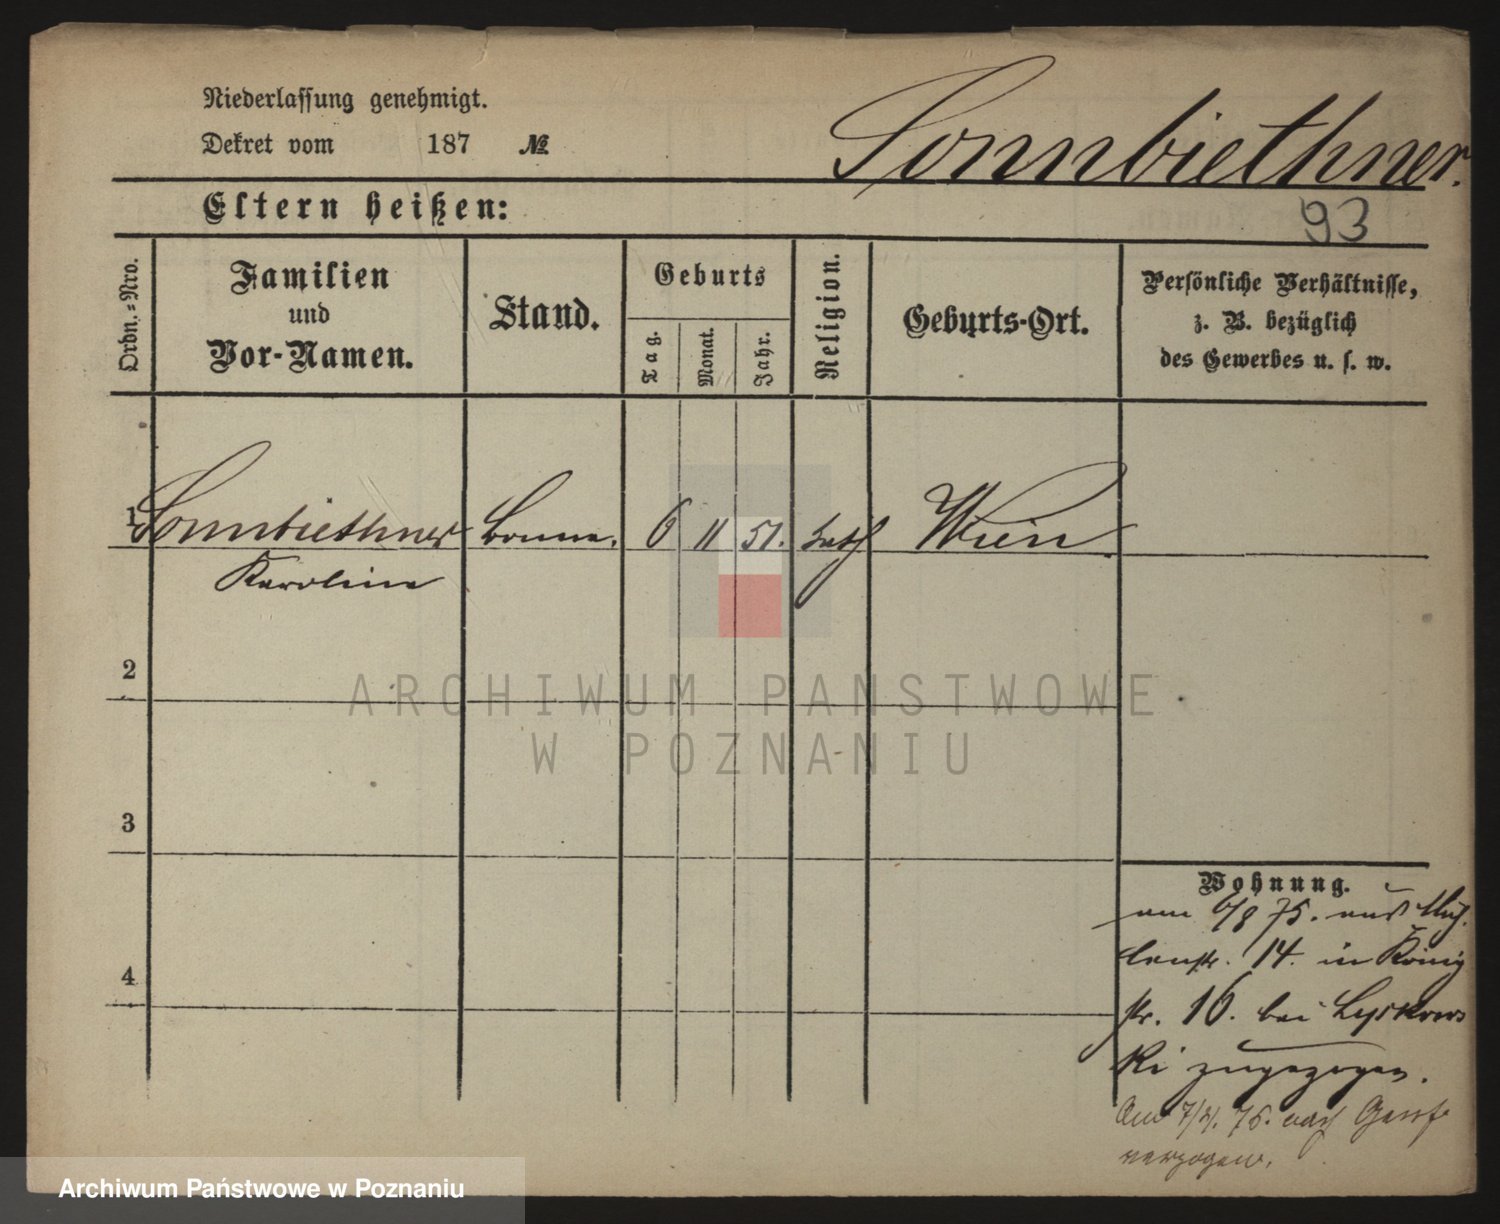 Niederlassung genehmigt.
Dekret vom 187 №
Sonnbiethner.
93
Eltern heißen:
Ordn.-Nro.
Familien
und
Vor-Namen.
Stand.
Geburts
Tag.
Monat.
Jahr.
Religion.
Geburts-Ort.
Persönliche Verhältnisse,
z. B. bezüglich
des Gewerbes u. s. w.
1 Sonnbiethner Bonne. 6 11 51. kath Wien
Karoline
2
3
4
Wohnung.
am 6/8 75. aus Müh
lenstr. 14. in König
str. 16. bei
ki zugezogen.
Am 76. nach Genf
verzogen.
ARCHIWUM PANSTWOWE
W POZNANIU
Archiwum Państwowe w Poznaniu